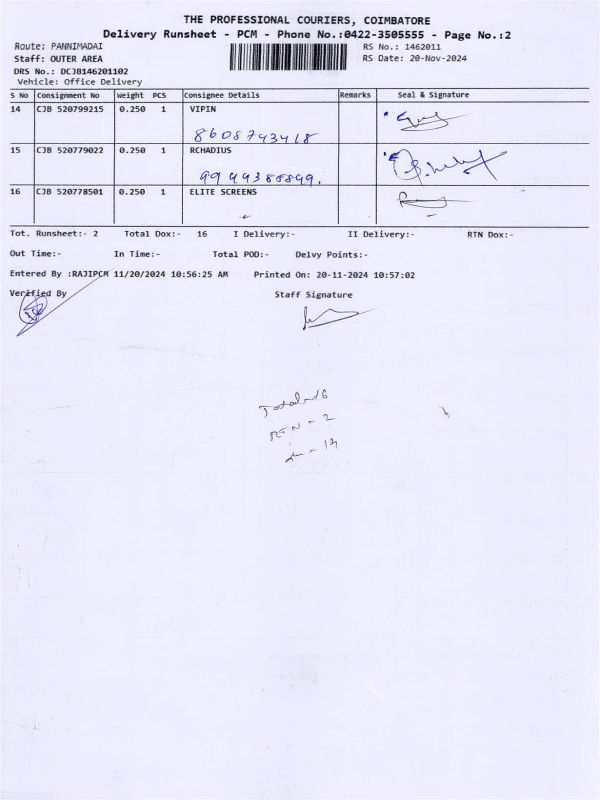 THE PROFESSIONAL COURIERS, COIMBATORE
Delivery Runsheet - PCM - Phone No.:0422-3505555 - Page No.:2
Route: PANNIMADAI RS No.: 1462011
Staff: OUTER AREA RS Date: 20-Nov-2024
DRS No.: DCJB146201102
Vehicle: Office Delivery
S No Consignment No Weight PCS Consignee Details Remarks Seal & Signature
14 CJB 520799215 0.250 1 VIPIN
8608743418
15 CJB 520779022 0.250 1 RCHADIUS
9944385849.
16 CJB 520778501 0.250 1 ELITE SCREENS
Tot. Runsheet:- 2 Total Dox:- 16 I Delivery:- II Delivery:- RTN Dox:-
Out Time:- In Time:- Total POD:- Delvy Points:-
Entered By :RAJIPCM 11/20/2024 10:56:25 AM Printed On: 20-11-2024 10:57:02
Verified By Staff Signature
Total-16
RTN - 2
- 13